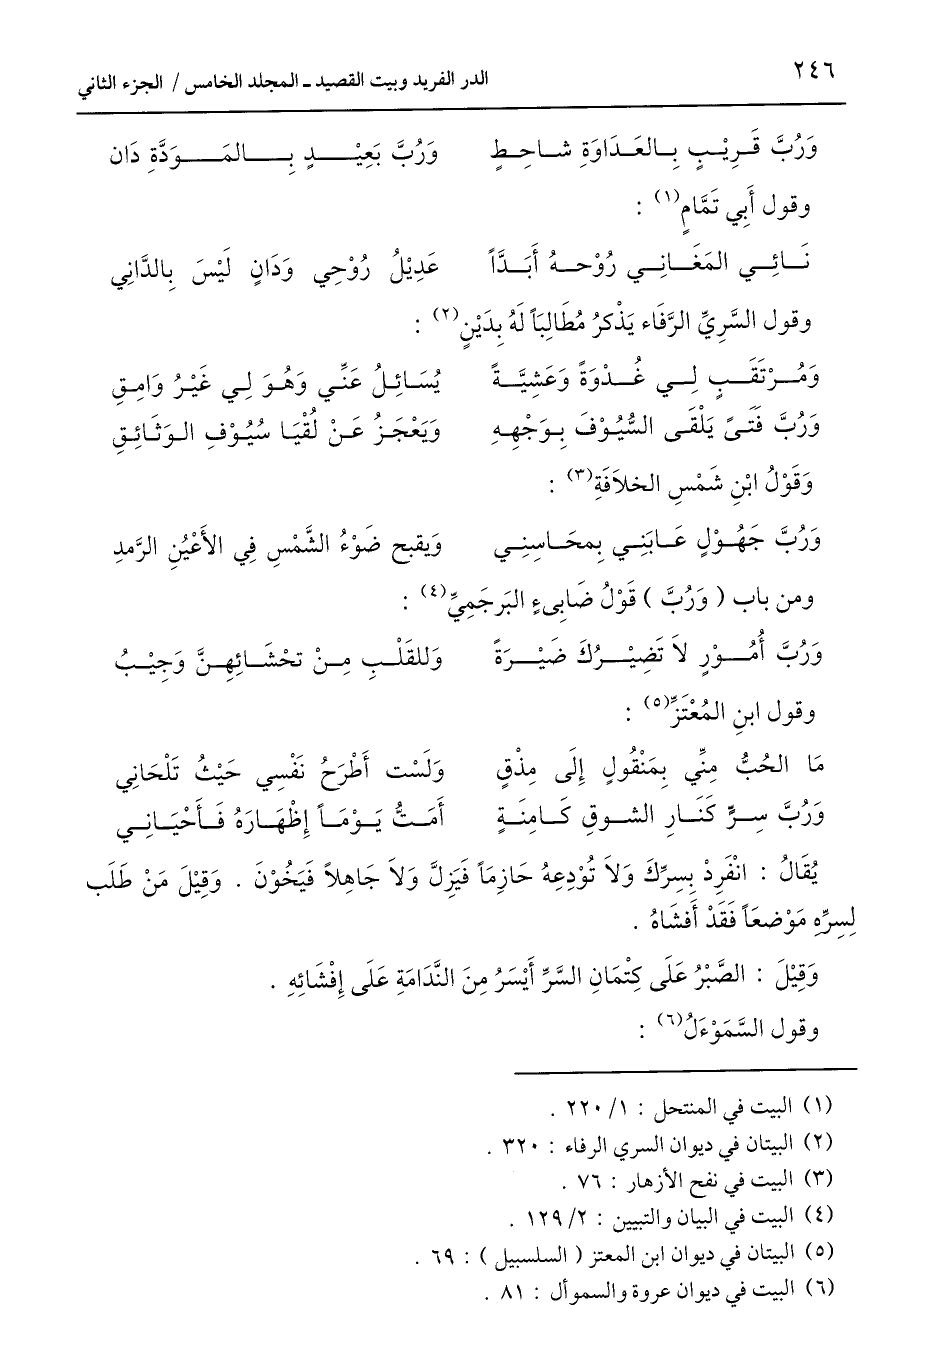 ٢٤٦
الدر الفريد وبيت القصيد ـ المجلد الخامس / الجزء الثاني
وَرُبَّ قَرِيْبٍ بِالعَدَاوَةِ شَاحِطٍ وَرُبَّ بَعِيْدٍ بِالمَوَدَّةِ دَانِ
وقول أَبِي تَمَّامٍ(١) :
نَائِي المَغَانِي رُوْحهُ أَبَدَاً عَدِيْلُ رُوْحِي وَدَانٍ لَيْسَ بِالدَّانِي
وقول السَّرِيِّ الرَّفَاء يَذْكرُ مُطَالِبَاً لَهُ بِدَيْنٍ(٢) :
وَمُرْتَقَبٍ لِي غُدْوَةً وَعَشِيَّةً يُسَائِلُ عَنِّي وَهْوَ لِي غَيْرُ وَامِقِ
وَرُبَّ فَتَىً يَلْقَى السُّيُوْفَ بِوَجْهِهِ وَيَعْجَزُ عَنْ لُقْيَا سُيُوْفِ الوَثَائِقِ
وَقَوْلُ ابْنِ شَمْسِ الخلاَفَةِ(٣) :
وَرُبَّ جَهُوْلٍ عَابَنِي بِمحَاسِنِي وَيقبح ضَوْءُ الشَّمْسِ فِي الأَعْيُنِ الرَّمدِ
ومن باب ( وَرُبَّ ) قَوْلُ ضَابِيءٍ البَرجَمِيِّ(٤) :
وَرُبَّ أُمُوْرٍ لاَ تَضِيْرُكَ ضَيْرَةً وَللقَلْبِ مِنْ تخْشَائِهِنَّ وَجِيْبُ
وقول ابنِ المُعْتَزِّ(٥) :
مَا الحُبُّ مِنِّي بِمَنْقُولٍ إِلَى مِذْقٍ وَلَسْت أَطْرَحُ نَفْسِي حَيْثُ تَلْحَانِي
وَرُبَّ سِرٍّ كَنَارِ الشوقِ كَامِنَةٍ أَمَتُّ يَوْمَاً إِظْهَارَهُ فَأَحْيَانِي
يُقَالُ : انْفَرِدْ بِسِرِّكَ وَلاَ تُوْدِعهُ حَازِمَاً فَيَزِلَّ وَلاَ جَاهِلاً فَيَخُوْنَ . وَقِيْلَ مَنْ طَلَب
لِسِرِّهِ مَوْضعَاً فَقَدْ أَفشَاهُ .
وَقِيْلَ : الصَّبْرُ عَلَى كِتْمَانِ السَّرِّ أَيسَرُ مِنَ النَّدَامَةِ عَلَى إِفْشَائِهِ .
وقول السَّمَوْءَلُ(٦) :
(١) البيت في المنتحل : ١/ ٢٢٠ .
(٢) البيتان في ديوان السري الرفاء : ٣٢٠ .
(٣) البيت في نفح الأزهار : ٧٦ .
(٤) البيت في البيان والتبيين : ٢/ ١٢٩ .
(٥) البيتان في ديوان ابن المعتز ( السلسبيل ) : ٦٩ .
(٦) البيت في ديوان عروة والسموأل : ٨١ .